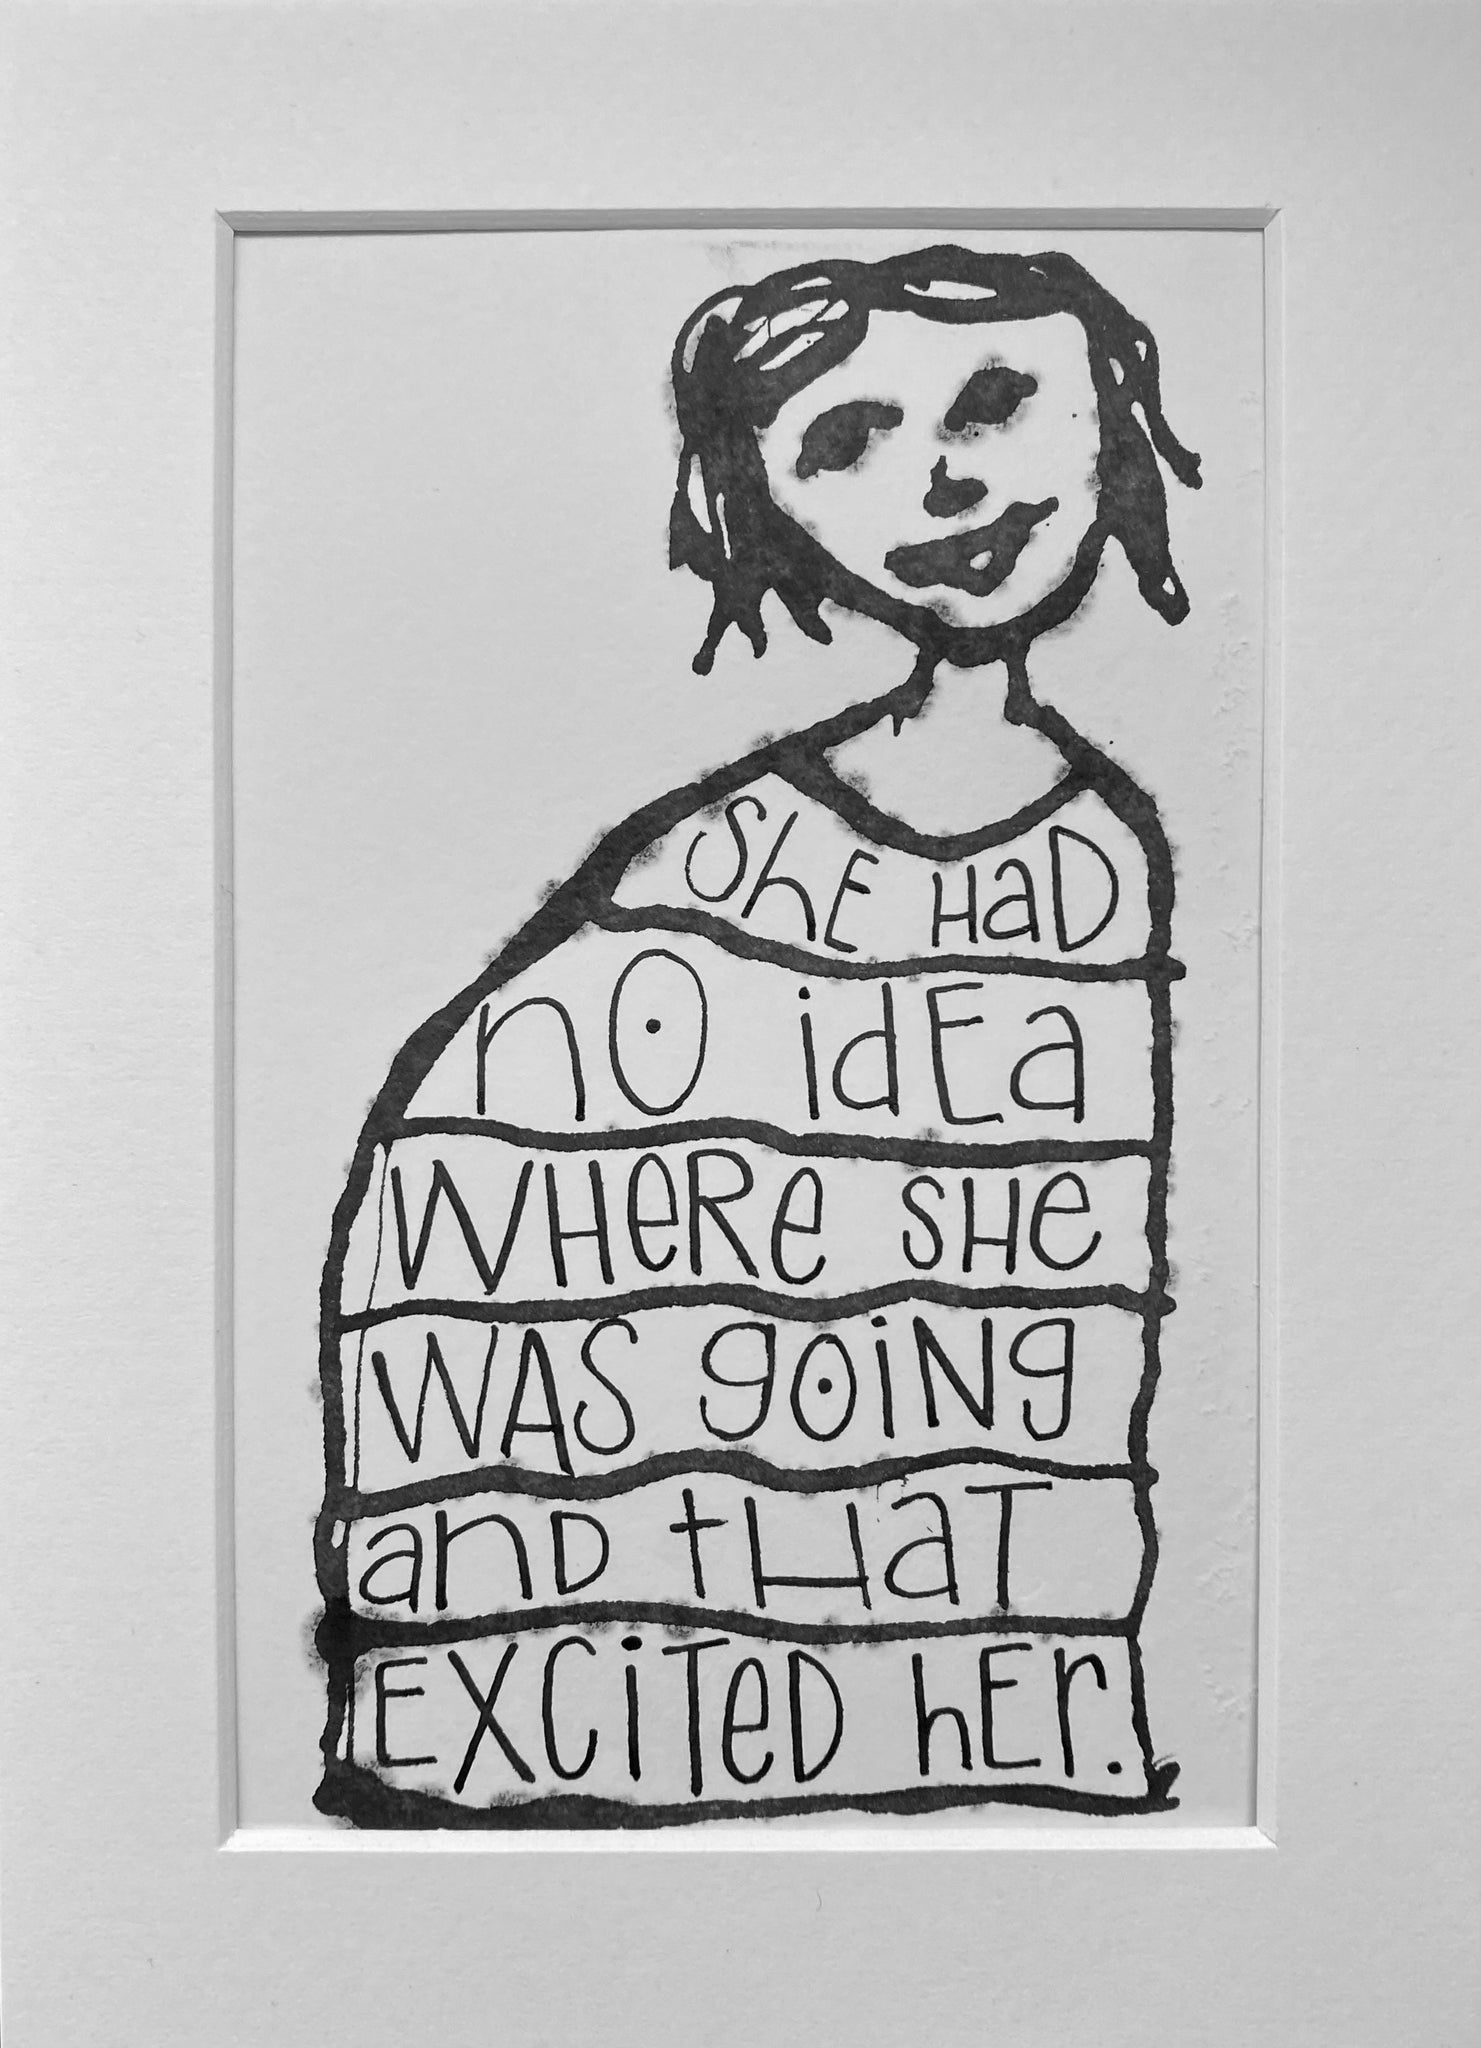 She Had
no idEa
WHeRe sHe
WAS goiNg
anD tHaT
EXCiTeD hEr.